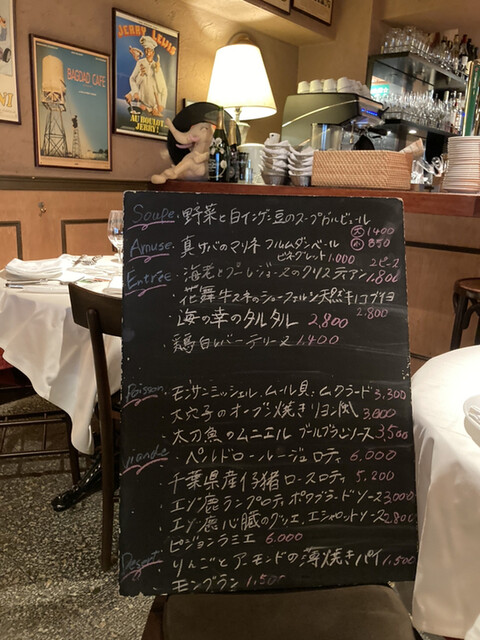 BAGDAD CAFE
JERRY LEWIS
AU BOULOT...
JERRY!
Soupe・野菜と白インゲン豆のスープガルビュール
大 1400
小 850
Amuse・真サバのマリネ フルムダンベール
ビネグレット 1,000
2ピース
Entrée・海老とブーレジョーヌのクリスティアン 1,800
・花舞牛スネのショーフェルン天然キノコ
2,800
・海の幸のタルタル 2,800
・鶏白レバーテリーヌ 1,400
Poisson・モンサンミッシェル、ムール貝、ムクラード 3,300
・大穴子のオーブン焼きリヨン風 3,000
・太刀魚のムニエル ブールブランソース 3,500
viande・ペルドロールージュロティ 6,000
・千葉県産仔猪ロースロティ 5,200
・エゾ鹿ランプロティ ポワブラードソース 3000
・エゾ鹿心臓のグリエ、エシャロットソース 2,800
ピジョンラミエ 6.000
Dessert・りんごとアーモンドの薄焼きパイ 1,500
モンブラン 1,500